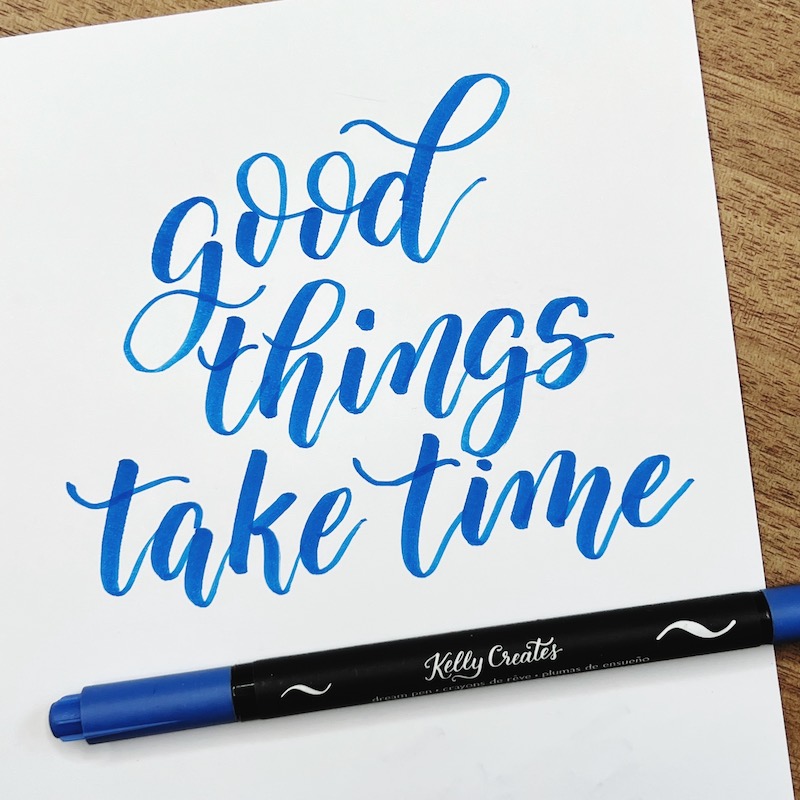 good
things
take time
Kelly Creates
dream pen • crayons de rêve • plumas de ensueño